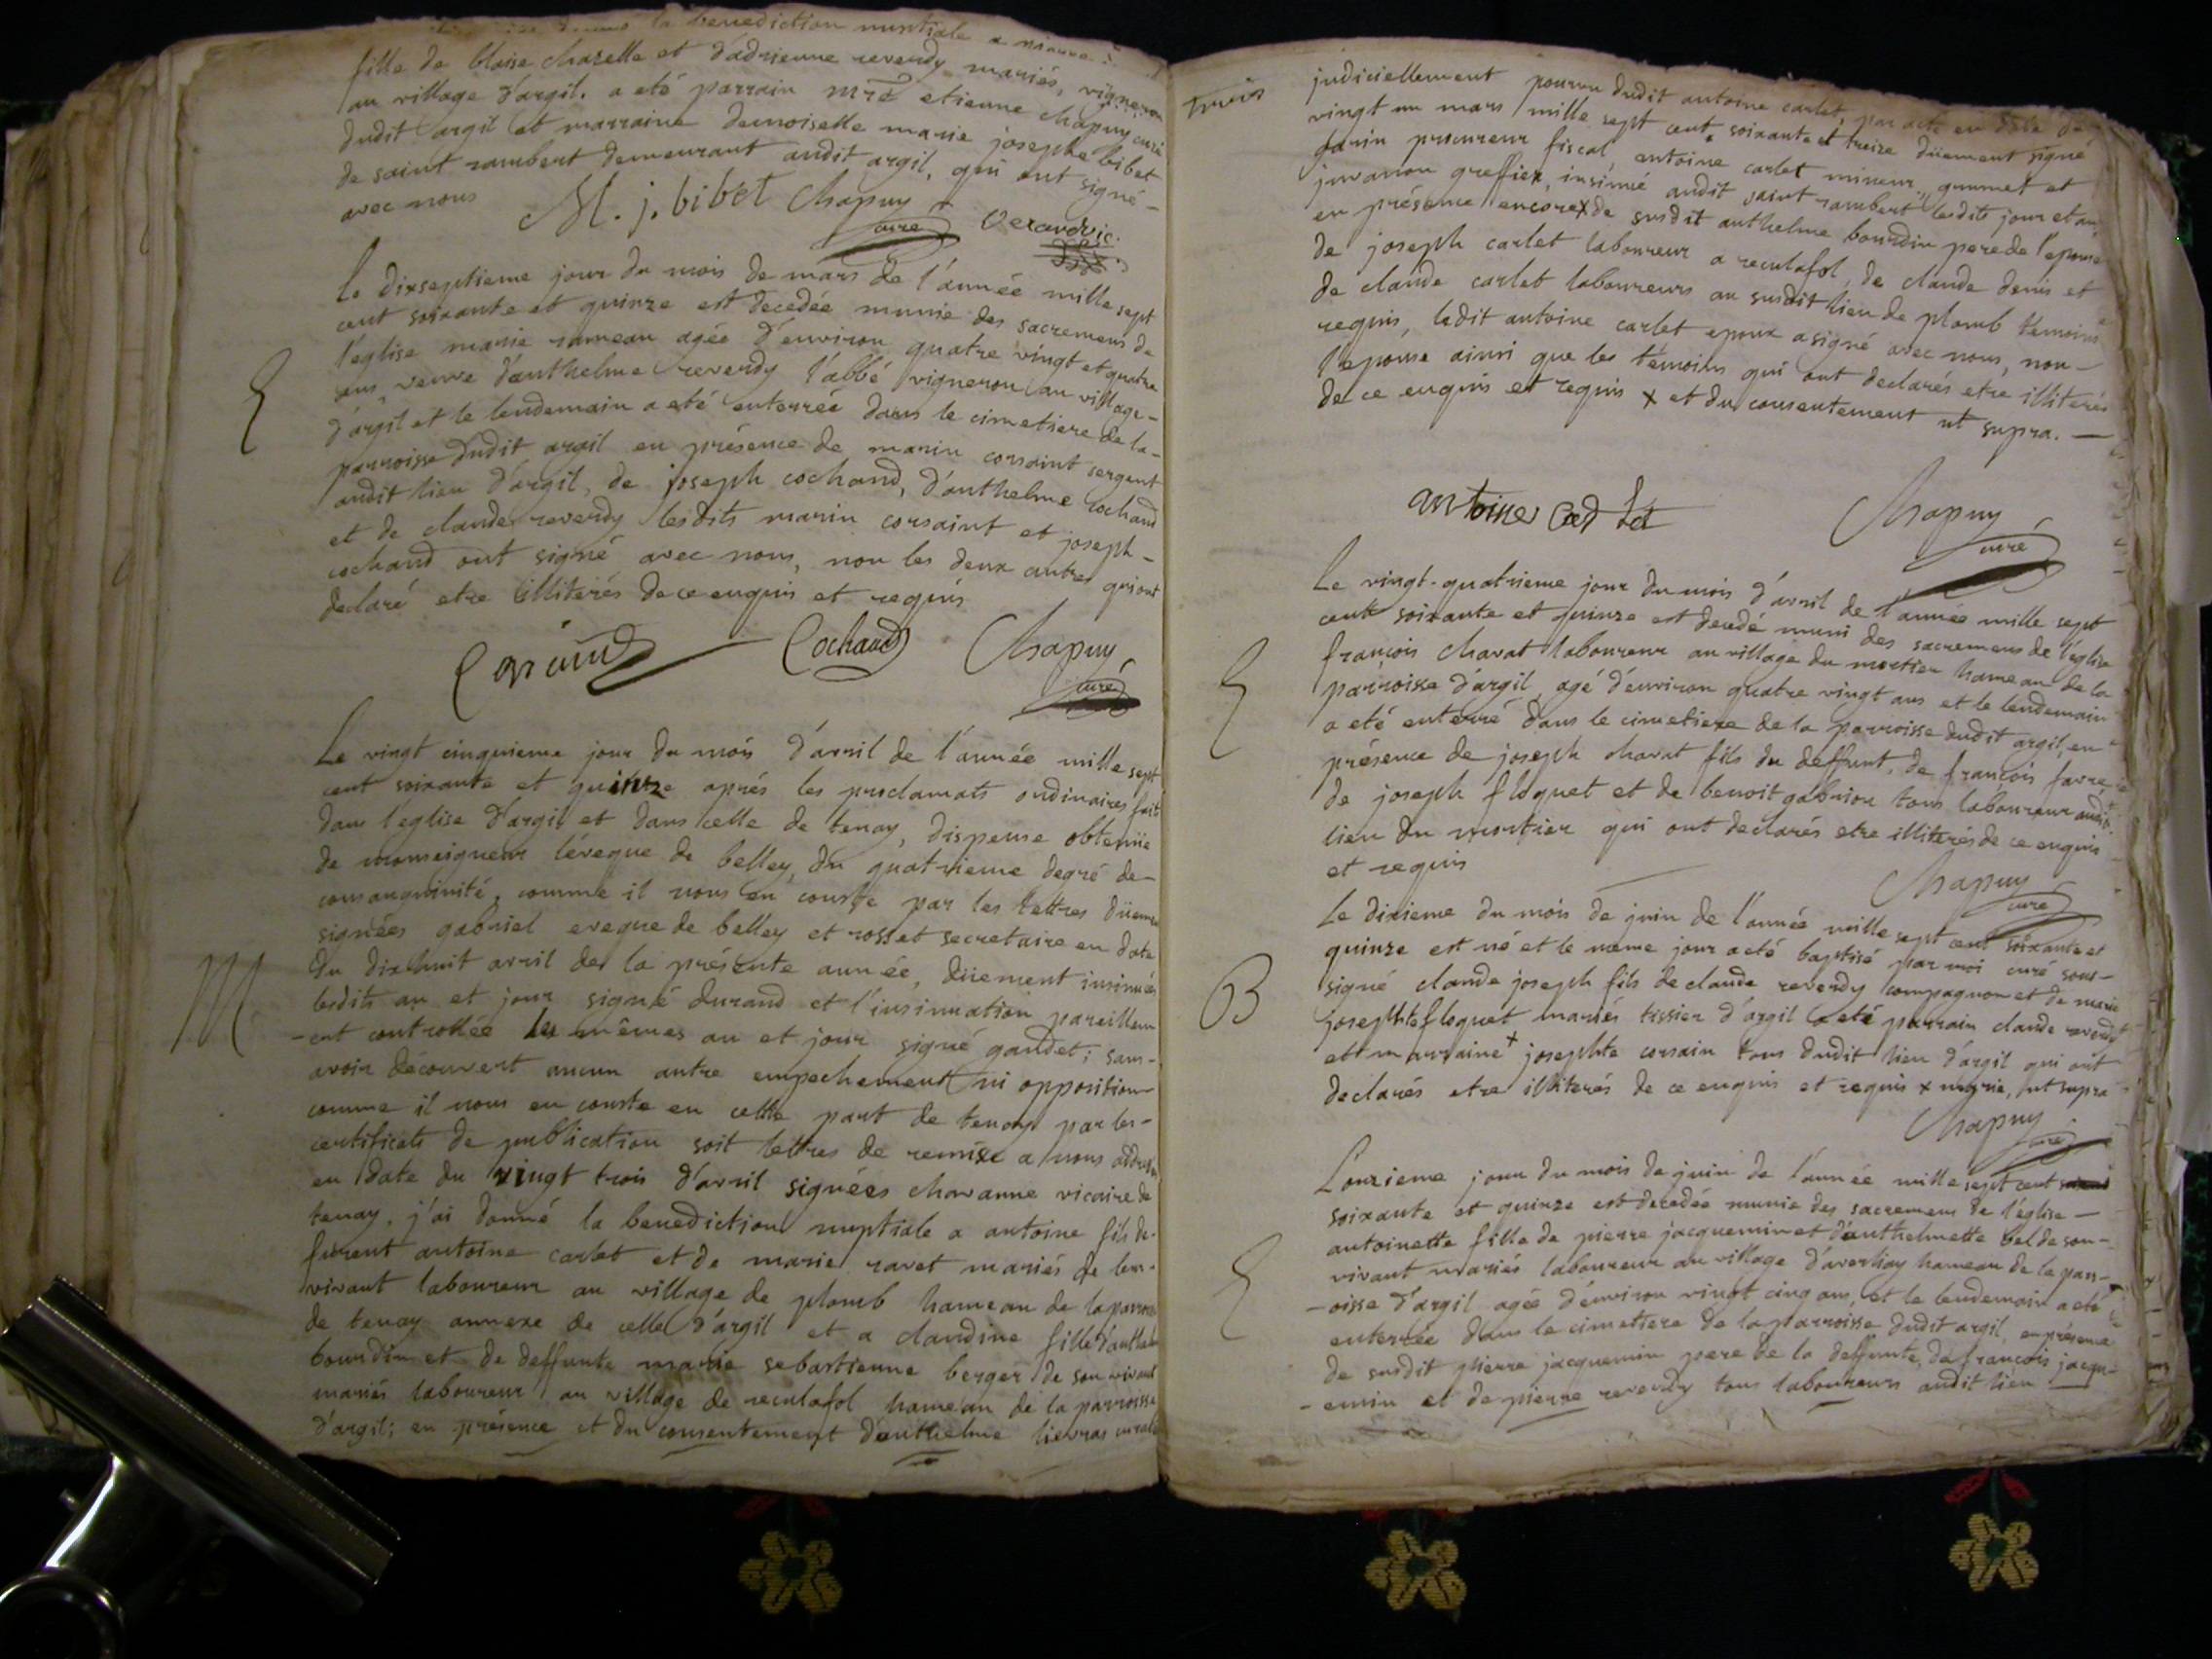 la benediction nuptiale a
fille de blaise chazelle et d'adrienne reverdy mariés, vigneron
au village d'argil. a eté parrain mre etienne chapuy curé
dudit argil et marraine demoiselle marie josephe bibet
de saint rambert demeurant audit argil, qui ont signé -
avec nous
M. j. bibet Chapuy
curé
Le dixseptieme jour du mois de mars de l'année mille sept
cent soixante et quinze est decedée munie des sacremens de
l'eglise marie rameau agée d'environ quatre vingt et quatre
ans, veuve d'anthelme reverdy l'abbé vigneron au village -
d'argil et le lendemain a eté enterrée dans le cimetiere de la -
parroisse dudit argil en présence de marin corsaint sergent
audit lieu d'argil, de joseph cochand, d'anthelme cochand
et de claude reverdy lesdits marin corsaint et joseph -
cochand ont signé avec nous, non les deux autres qui ont
declaré etre illiterés de ce enquis et requis
Cochand Chapuy
curé
Le vingt cinquieme jour du mois d'avril de l'année mille sept
cent soixante et quinze aprés les proclamats ordinaires fait
dans l'eglise d'argil et dans celle de tenay, dispense obtenüe
de monseigneur l'éveque de belley, du quatrieme degré de -
consanguinité, comme il nous en conste par les lettres düement
signées gabriel eveque de belley et rosset secretaire en date
du dixhuit avril de la présente année, düement insinuées
M
lesdits an et jour signé durand et l'insinuation pareillem
- ent controllée les mêmes an et jour signé gaudet; sans -
avoir découvert aucun autre empechement ni opposition
comme il nous en conste en cette part de tenay par les -
certificats de publication soit lettres de remise a nous
en date du vingt trois d'avril signées chavanne vicaire de
tenay, j'ai donné la benediction nuptiale a antoine fils de
furent antoine carlet et de marie ravet mariés de leur
vivant laboureur au village de plomb hameau de la parroisse
de tenay annexe de celle d'argil et a claudine fille d'anthelme
bourdin et de deffunte marie sebastienne berger de son vivant
mariés laboureur au village de reculafol hameau de la parroisse
d'argil; en présence et du consentement d'anthelme
judiciellement pourvu dudit antoine carlet, par acte en date de
vingt un mars mille sept cent soixante et treize düement signé
janin procureur fiscal, antoine carlet mineur, grumet et
juvanon greffier, insinué audit saint rambert lesdits jour et an
en présence encore x de susdit anthelme bourdin pere de l'epouse
de joseph carlet laboureur a reculafol, de claude denis et
de claude carlet laboureurs au susdit lieu de plomb temoins
requis, ledit antoine carlet epoux a signé avec nous, non -
l'epouse ainsi que les temoins qui ont declarés etre illiterés
de ce enquis et requis x et du consentement ut supra. -
antoine Chapuy
curé
Le vingt-quatrieme jour du mois d'avril de l'année mille sept
cent soixante et quinze est decedé muni des sacremens de l'eglise
françois charat laboureur au village du mortier hameau de la
parroisse d'argil, agé d'environ quatre vingt ans et le lendemain
a eté enterré dans le cimetiere de la parroisse dudit argil, en
présence de joseph charat fils du deffunt, de françois favre,
de joseph floquet et de benoit gabrion tous laboureur audit
lieu du mortier qui ont declarés etre illiterés de ce enquis
et requis
Chapuy
curé
Le dixieme du mois de juin de l'année mille sept cent soixante et
quinze est né et le meme jour a eté baptisé par moi curé sous -
B
signé claude joseph fils de claude reverdy compagnon et de marie
josephte floquet mariés tissier d'argil a eté parrain claude reverdy
et marraine + josephte corsain tous dudit lieu d'argil qui ont
declarés etre illiterés de ce enquis et requis x marie, ut supra
Chapuy
curé
L'onzieme jour du mois de juin de l'année mille sept cent
soixante et quinze est decedée munie des sacremens de l'église -
antoinette fille de pierre jacquemin et d'anthelmette bel de son -
vivant mariés laboureur au village d'averliay hameau de la parr -
- oisse d'argil agée d'environ vingt cinq ans, et le lendemain a eté
enterrée dans le cimetiere de la parroisse dudit argil, en présence
de susdit pierre jacquemin pere de la deffunte, de françois jacqu -
- emin et de pierre reverdy tous laboureurs audit lieu